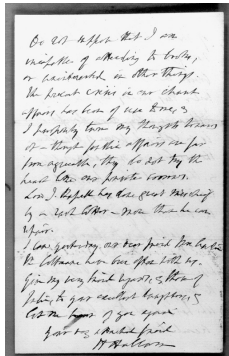 Do not suppose that I am
incapable of attending to books,
or uninterested in other things.
The present crisis in our church
affairs has been of use to me, &
I perpetually turn my thoughts towards
for this affairs are far
from agreeable, they do not try the
heart like our private sorrows.
Lord J. Russell has done great mischief
by a rash letter - more than he can
repair.
I saw yesterday, our dear friend Mrs
have been often with us.
Give my very kind regards, & those of
Julia, to your excellent daughters, &
let me hear of you again
Your very attached friend
H Hallam